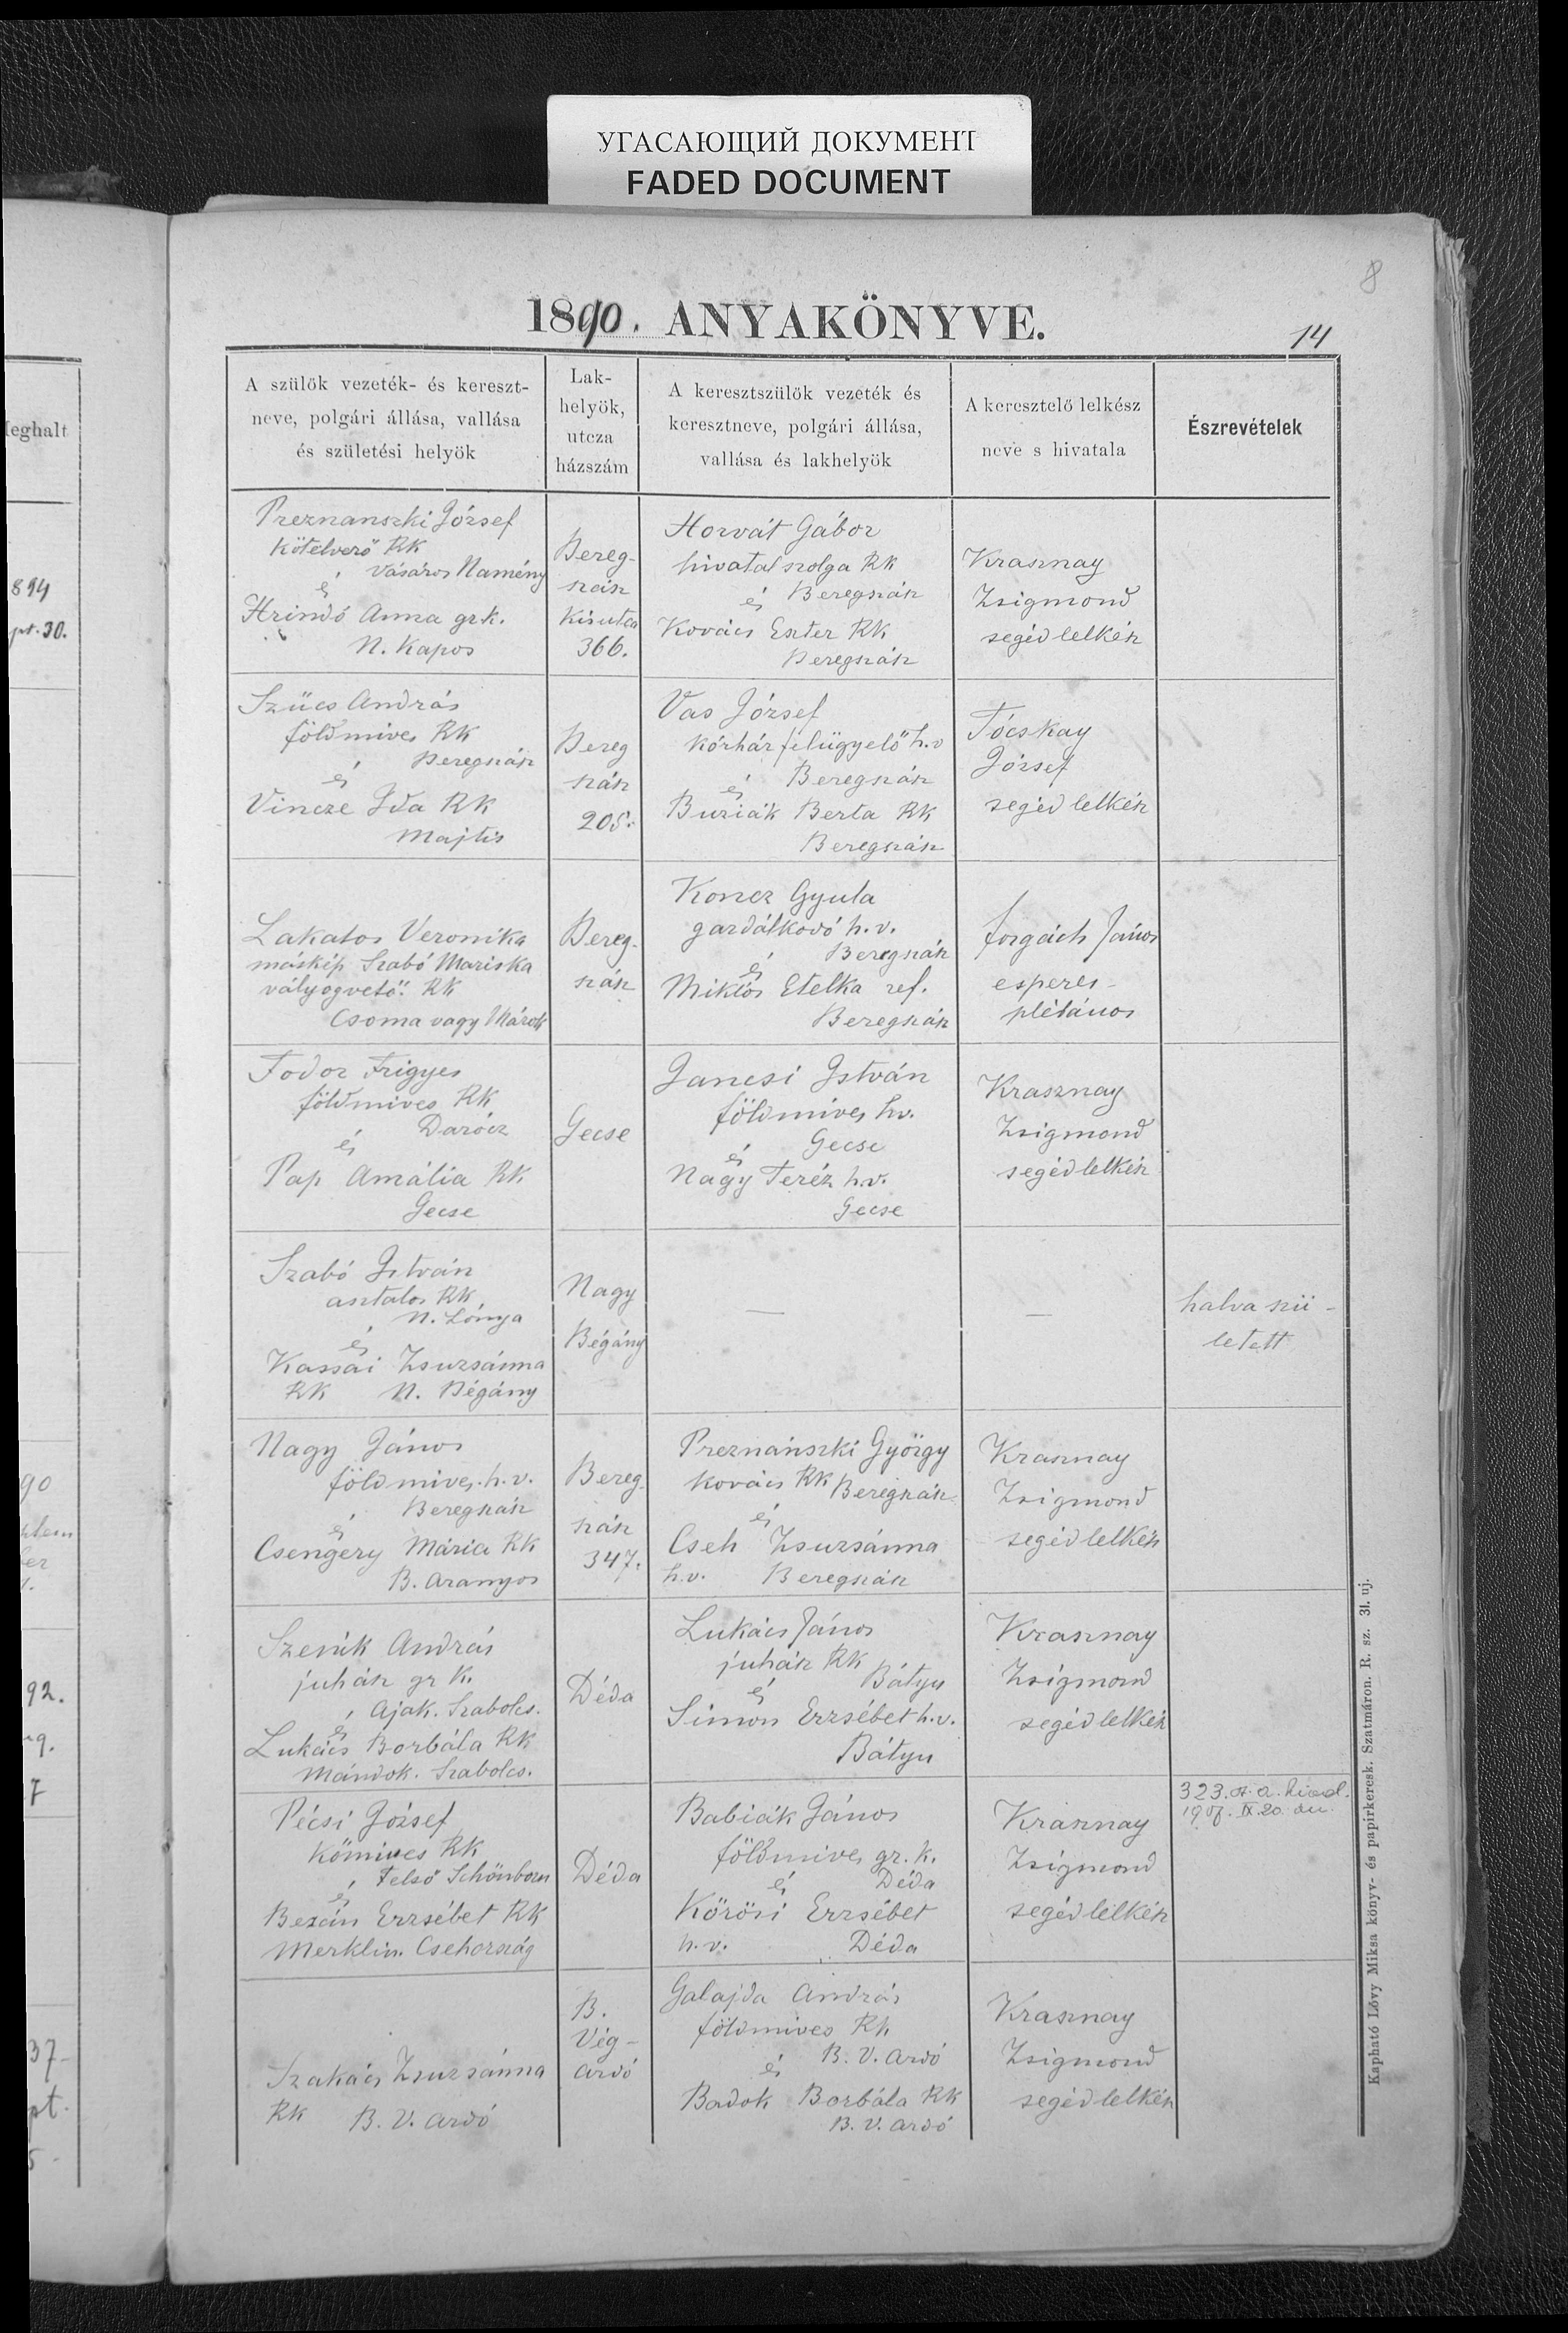 УГАСАЮЩИЙ ДОКУМЕНТ
FADED DOCUMENT
8
1890. ANYAKÖNYVE.
14
A szülők vezeték- és kereszt-
neve, polgári állása, vallása
és születési helyök
Lak-
helyök,
utcza
házszám
A keresztszülők vezeték és
keresztneve, polgári állása,
vallása és lakhelyök
A keresztelő lelkész
neve s hivatala
Észrevételek
Preznanszki József
kötélverő RK
Vásáros Namény
és
Hrindó Anna gr k.
N. Kapos
Bereg-
szász
Kisutca
366.
Horvát Gábor
hivatalszolga RK
és Beregszász
Kovács Eszter RK
Beregszász
Krasznay
Zsigmond
segédlelkész
Szücs András
földmives RK
Beregszász
és
Vincze Ida RK
Majtis
Bereg
szász
205.
Vas József
kórház felügyelő h.v
Beregszász
és
Buziák Berta RK
Beregszász
Tócskay
József
segédlelkész
Lakatos Veronika
máskép Szabó Mariska
vályogvető. RK
Csoma vagy Márok
Bereg-
szász
Koncz Gyula
gazdálkodó h.v.
Beregszász
és
Miklós Etelka ref.
Beregszász
forgách János
esperes-
plébános
Fodor Frigyes
földmives RK
Darócz
és
Pap Amália RK
Gecse
Gecse
Jancsi István
földmives hv.
Gecse
és
Nagy Teréz h.v.
Gecse
Krasznay
Zsigmond
segédlelkész
Szabó István
asztalos RK
N. Lónya
és
Kassai Zsuzsánna
RK N. Bégány
Nagy
Bégány
—
—
halva szü-
letett
Nagy János
földmives. h.v.
Beregszász
és
Csengery Mária RK
B. Aranyos
Bereg-
szász
347.
Preznánszki György
kovács RK Beregszász
és
Cseh Zsuzsánna
h.v. Beregszász
Krasznay
Zsigmond
segédlelkész
András
juhász gr k.
Ajak. Szabolcs.
és
Lukács Borbála RK
Mándok. Szabolcs.
Déda
Lukács János
juhász RK
Bátyu
és
Simon Erzsébet h.v.
Bátyu
Krasznay
Zsigmond
segédlelkész
Pécsi József
kőmives RK
Felső Schönborn
és
Bezán Erzsébet RK
Merklin. Csehország
Déda
Babiák János
földmives gr. k.
és Déda
Kőrösi Erzsébet
h.v. Déda
Krasznay
Zsigmond
segédlelkész
323. a. kiad.
IX. 20.
Szakács Zsuzsánna
RK B. V. Ardó
B.
Vég-
ardó
Galajda András
földmives Rk
B. V. Ardó
és
Badok Borbála RK
B. V. Ardó
Krasznay
Zsigmond
segédlelkész
Kapható Lövy Miksa könyv- és papirkeresk. Szatmáron. R. sz. 31. uj.